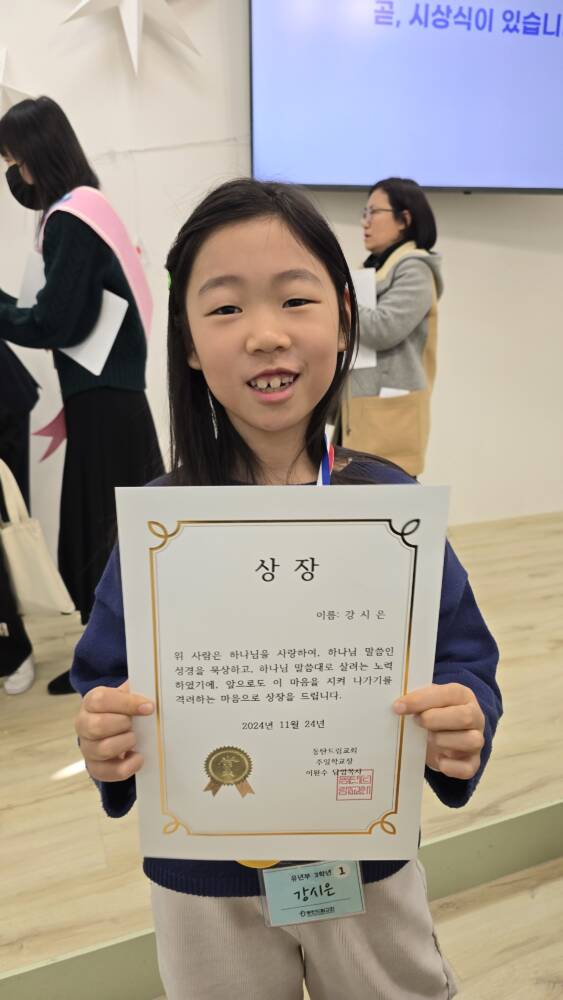 곧, 시상식이 있습니
상 장
이름: 강 시 은
위 사람은 하나님을 사랑하여, 하나님 말씀인
성경을 묵상하고, 하나님 말씀대로 살려는 노력
하였기에, 앞으로도 이 마음을 지켜 나가기를
격려하는 마음으로 상장을 드립니다.
2024년 11월 24일
동탄드림교회
주일학교장
이완수 담임목사
유년부 3학년 1
강시은
동탄드림교회